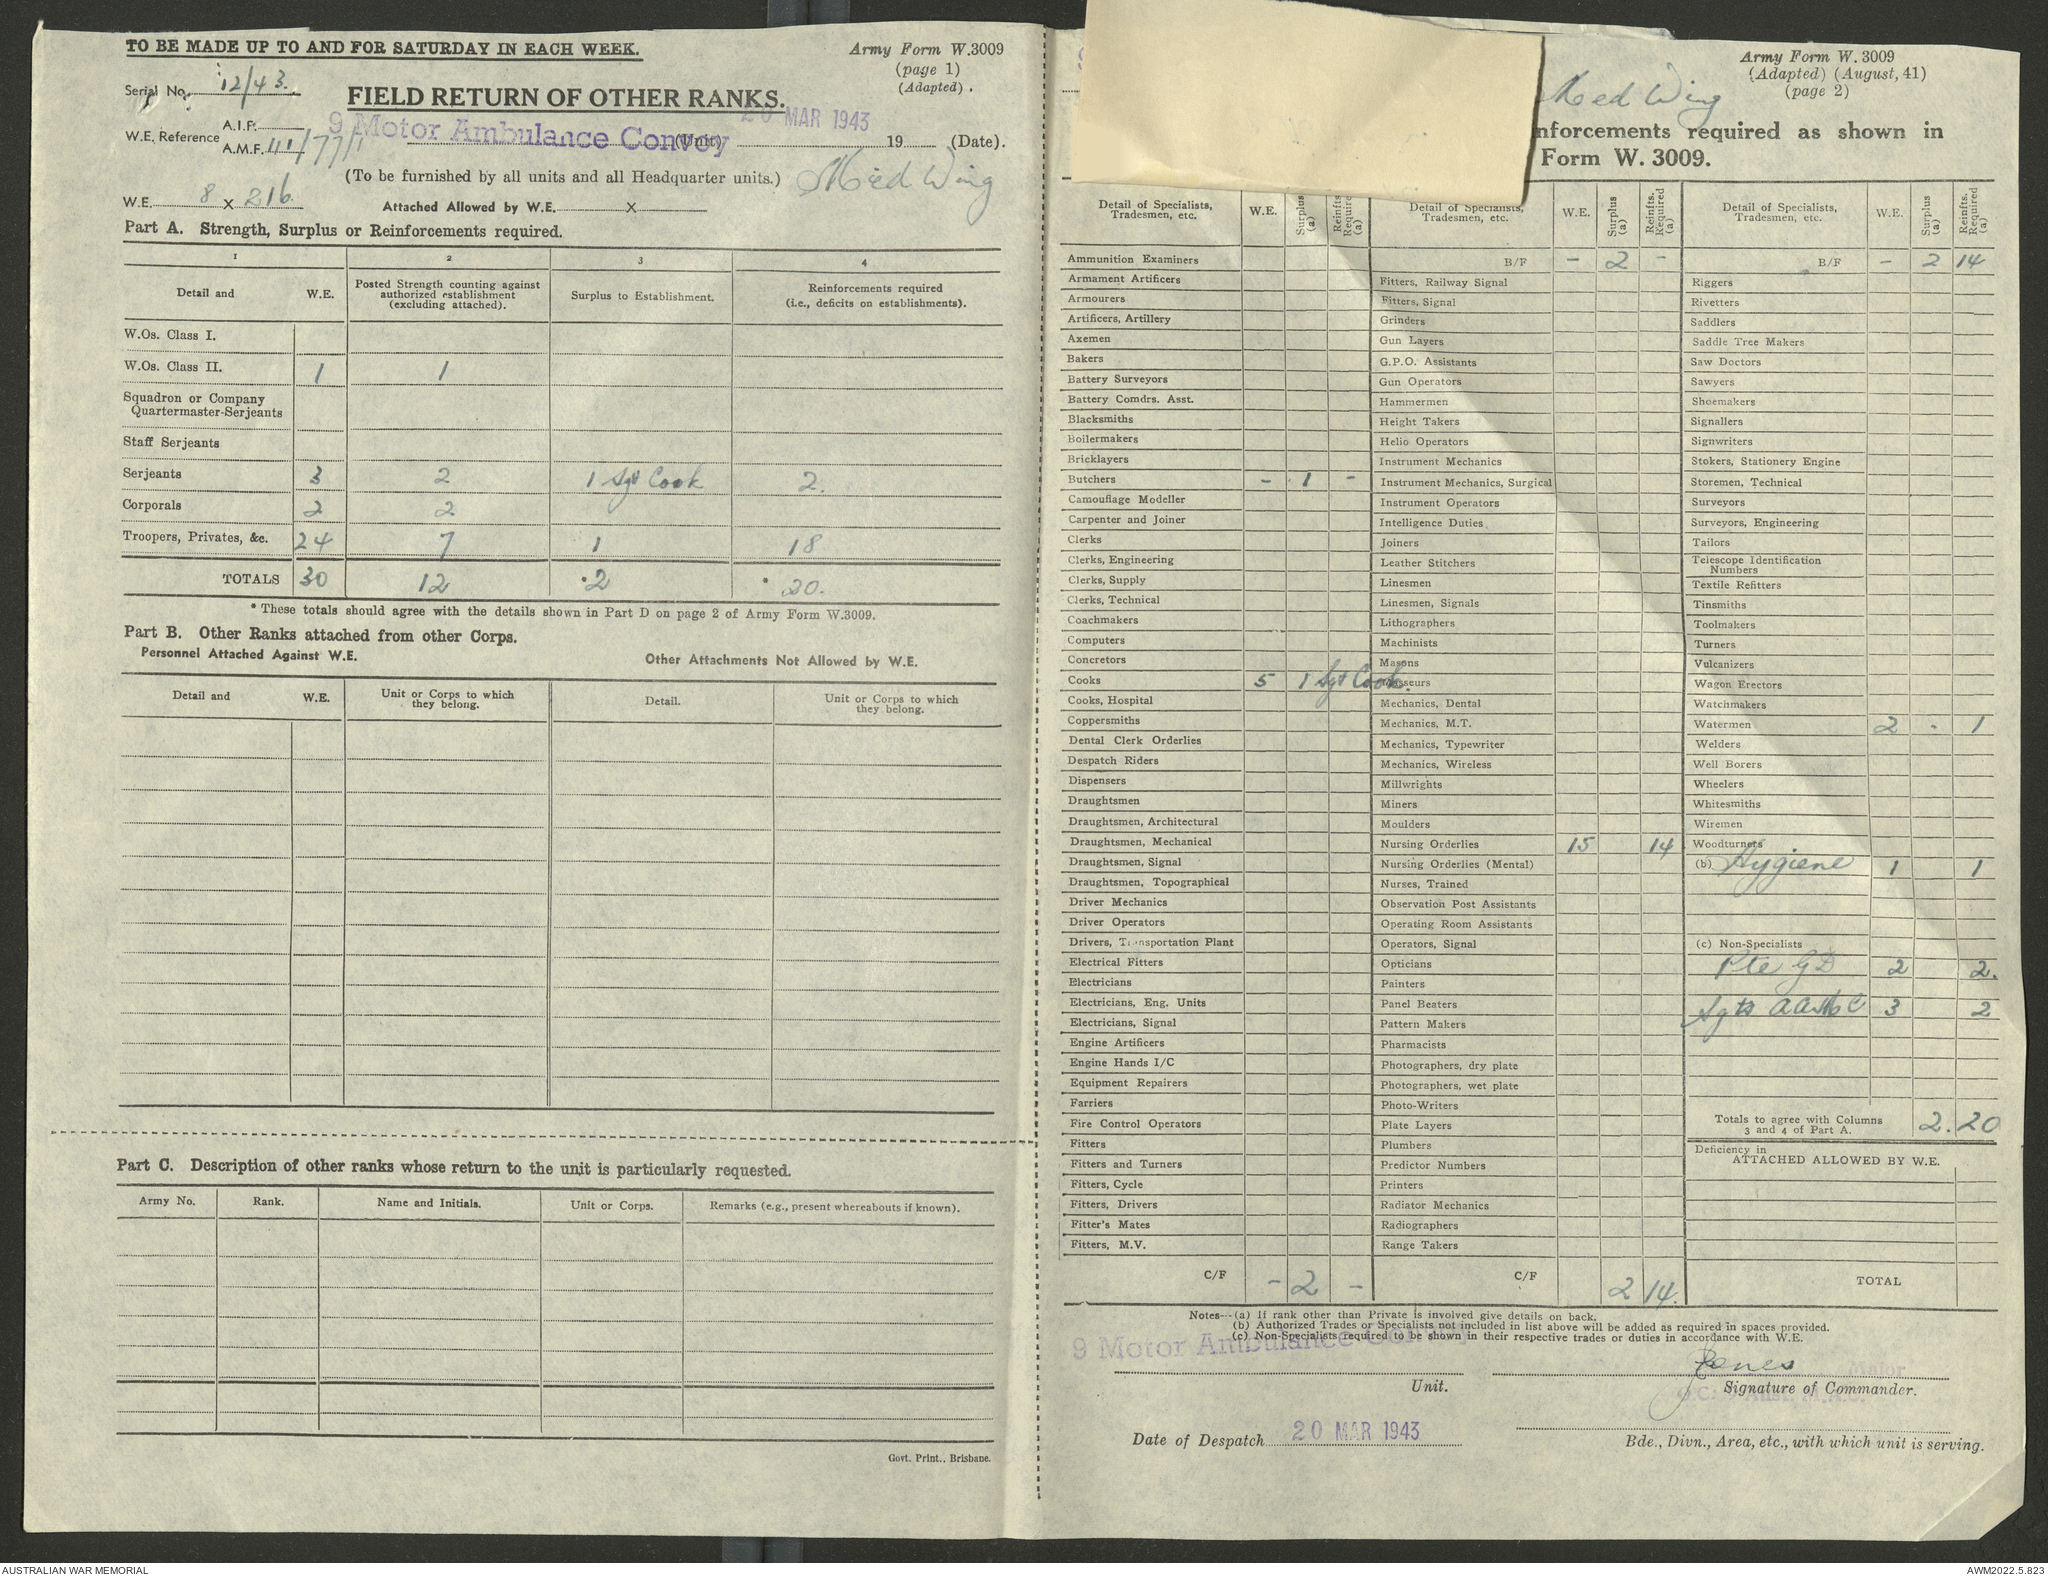 TO BE MADE UP TO AND FOR SATURDAY IN EACH WEEK.
Army Form W.3009
(page 1)
(Adapted).
Serial No. 12/43.
FIELD RETURN OF OTHER RANKS.
W.E. Reference A.I.F.
A.M.F. 111/77/1
9 Motor Ambulance Convoy (Unit) 20 MAR 1943 19 (Date).
(To be furnished by all units and all Headquarter units.) Med Wing
W.E. 8 x 216 Attached Allowed by W.E. x
Part A. Strength, Surplus or Reinforcements required.
1 2 3 4
Detail and W.E. Posted Strength counting against authorized establishment (excluding attached). Surplus to Establishment. Reinforcements required (i.e., deficits on establishments).
W.Os. Class I.
W.Os. Class II. 1 1
Squadron or Company
Quartermaster-Serjeants
Staff Serjeants
Serjeants 3 2 1 Sgt Cook 2.
Corporals 2 2
Troopers, Privates, &c. 24 7 1 18
TOTALS 30 12 *2 * 20.
* These totals should agree with the details shown in Part D on page 2 of Army Form W.3009.
Part B. Other Ranks attached from other Corps.
Personnel Attached Against W.E. Other Attachments Not Allowed by W.E.
Detail and W.E. Unit or Corps to which they belong. Detail. Unit or Corps to which they belong.
Part C. Description of other ranks whose return to the unit is particularly requested.
Army No. Rank. Name and Initials. Unit or Corps. Remarks (e.g., present whereabouts if known).
Govt. Print., Brisbane.
Army Form W. 3009
(Adapted) (August, 41)
(page 2)
Med Wing
nforcements required as shown in
Form W. 3009.
Detail of Specialists, Tradesmen, etc. W.E. Surplus (a) Reinfts. Required (a)
Ammunition Examiners
Armament Artificers
Armourers
Artificers, Artillery
Axemen
Bakers
Battery Surveyors
Battery Comdrs. Asst.
Blacksmiths
Boilermakers
Bricklayers
Butchers - 1 -
Camouflage Modeller
Carpenter and Joiner
Clerks
Clerks, Engineering
Clerks, Supply
Clerks, Technical
Coachmakers
Computers
Concretors
Cooks 5 1 Sgt Cook.
Cooks, Hospital
Coppersmiths
Dental Clerk Orderlies
Despatch Riders
Dispensers
Draughtsmen
Draughtsmen, Architectural
Draughtsmen, Mechanical
Draughtsmen, Signal
Draughtsmen, Topographical
Driver Mechanics
Driver Operators
Drivers, Transportation Plant
Electrical Fitters
Electricians
Electricians, Eng. Units
Electricians, Signal
Engine Artificers
Engine Hands I/C
Equipment Repairers
Farriers
Fire Control Operators
Fitters
Fitters and Turners
Fitters, Cycle
Fitters, Drivers
Fitter's Mates
Fitters, M.V.
C/F - 2 -
Detail of Specialists, Tradesmen, etc. W.E. Surplus (a) Reinfts. Required (a)
B/F - 2 -
Fitters, Railway Signal
Fitters, Signal
Grinders
Gun Layers
G.P.O. Assistants
Gun Operators
Hammermen
Height Takers
Helio Operators
Instrument Mechanics
Instrument Mechanics, Surgical
Instrument Operators
Intelligence Duties
Joiners
Leather Stitchers
Linesmen
Linesmen, Signals
Lithographers
Machinists
Masons
Masseurs
Mechanics, Dental
Mechanics, M.T.
Mechanics, Typewriter
Mechanics, Wireless
Millwrights
Miners
Moulders
Nursing Orderlies 15 14
Nursing Orderlies (Mental)
Nurses, Trained
Observation Post Assistants
Operating Room Assistants
Operators, Signal
Opticians
Painters
Panel Beaters
Pattern Makers
Pharmacists
Photographers, dry plate
Photographers, wet plate
Photo-Writers
Plate Layers
Plumbers
Predictor Numbers
Printers
Radiator Mechanics
Radiographers
Range Takers
C/F 2 14.
Detail of Specialists, Tradesmen, etc. W.E. Surplus (a) Reinfts. Required (a)
B/F - 2 14
Riggers
Rivetters
Saddlers
Saddle Tree Makers
Saw Doctors
Sawyers
Shoemakers
Signallers
Signwriters
Stokers, Stationery Engine
Storemen, Technical
Surveyors
Surveyors, Engineering
Tailors
Telescope Identification
Numbers
Textile Refitters
Tinsmiths
Toolmakers
Turners
Vulcanizers
Wagon Erectors
Watchmakers
Watermen 2 - 1
Welders
Well Borers
Wheelers
Whitesmiths
Wiremen
Woodturners
(b) Hygiene 1 1
(c) Non-Specialists
Pte GD 2 2.
Sgts AAMC 3 2
Totals to agree with Columns
3 and 4 of Part A. 2. 20
Deficiency in
ATTACHED ALLOWED BY W.E.
TOTAL
Notes—(a) If rank other than Private is involved give details on back.
(b) Authorized Trades or Specialists not included in list above will be added as required in spaces provided.
(c) Non-Specialists required to be shown in their respective trades or duties in accordance with W.E.
9 Motor Ambulance Convoy
Unit.
Jones Major
Signature of Commander.
Date of Despatch 20 MAR 1943
Bde., Divn., Area, etc., with which unit is serving.
AUSTRALIAN WAR MEMORIAL
AWM2022.5.823